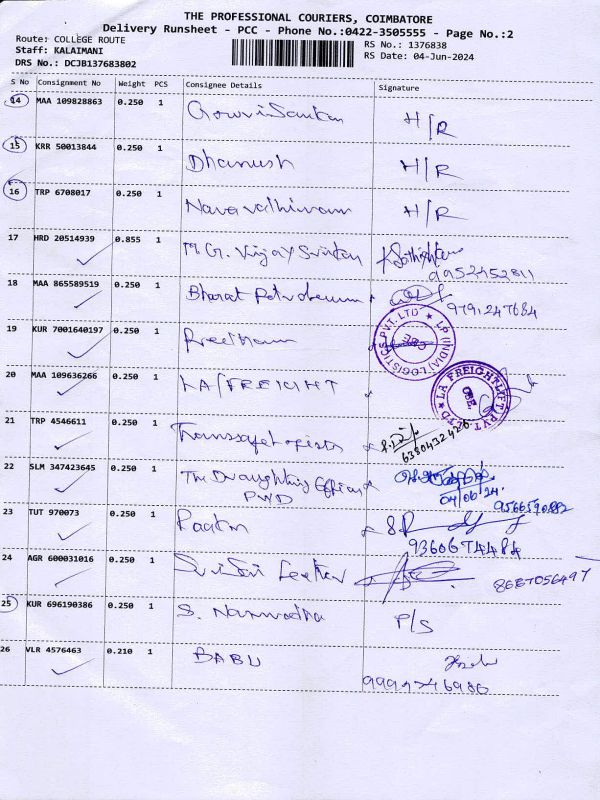 THE PROFESSIONAL COURIERS, COIMBATORE
Delivery Runsheet - PCC - Phone No.:0422-3505555 - Page No.:2
Route: COLLEGE ROUTE
Staff: KALAIMANI
DRS No.: DCJB137683802
RS No.: 1376838
RS Date: 04-Jun-2024
S No Consignment No Weight PCS Consignee Details Signature
14 MAA 109828863 0.250 1 GowriSankar H/R
15 KRR 50013844 0.250 1 Dhanush H/R
16 TRP 6708017 0.250 1 H/R
17 HRD 20514939 0.855 1 M.G. Vijay
9952452811
18 MAA 865589519 0.250 1 Bharat Petroleum
9791247684
19 KUR 7001640197 0.250 1 Preetham
LP (INDIA) LOGISTICS PVT. LTD
20 MAA 109636266 0.250 1 LA/FREIGHT
LA FREIGHTLIFT PVT LTD
CBE.
21 TRP 4546611 0.250 1 Transsafe Logistics
6380432426
22 SLM 347423645 0.250 1 The Draughting Officer
PWD
04/06/24.
9566590882
23 TUT 970073 0.250 1
9360674484
24 AGR 600031016 0.250 1 Sri Sai Leather
8667056497
25 KUR 696190386 0.250 1 S. Narmadha P/S
26 VLR 4576463 0.210 1 BABU
9994746980